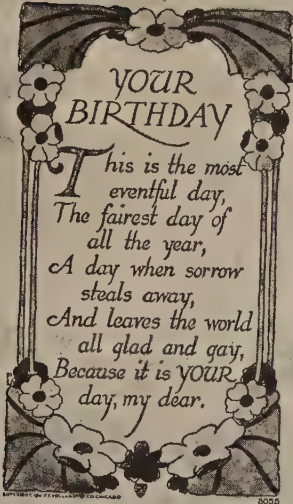 YOUR
BIRTHDAY
This is the most
eventful day,
The fairest day of
all the year,
A day when sorrow
steals away,
And leaves the world
all glad and gay,
Because it is YOUR
day, my dear.
CHICAGO